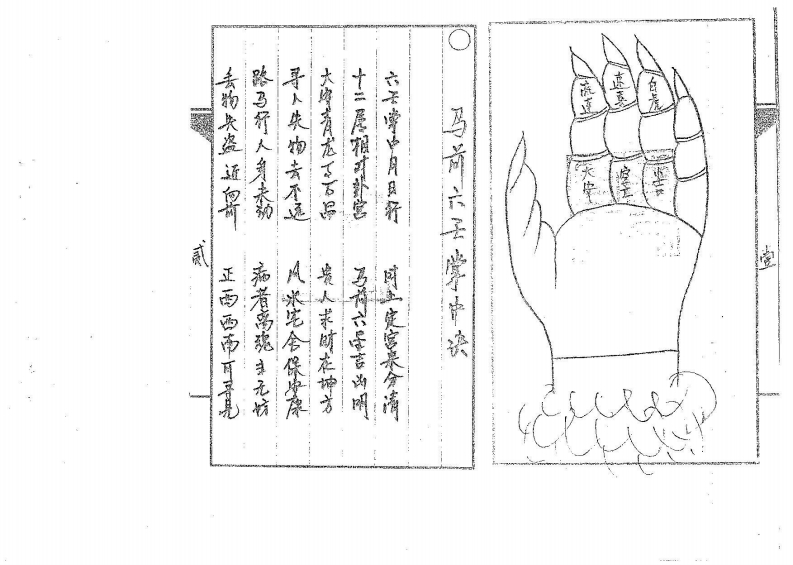 流連
速喜
白虎
大安
空亡
堂
马前六壬掌中诀
六壬掌中月日行 时上定宫来分清
十二属相对卦宫 马前六壬吉凶明
大安青龙 贵人求财在坤方
寻人失物去不远 风水宅舍保安康
路马行人身未动 病者离魂主无妨
丢物失盗近向前 正西西南可寻见
贰